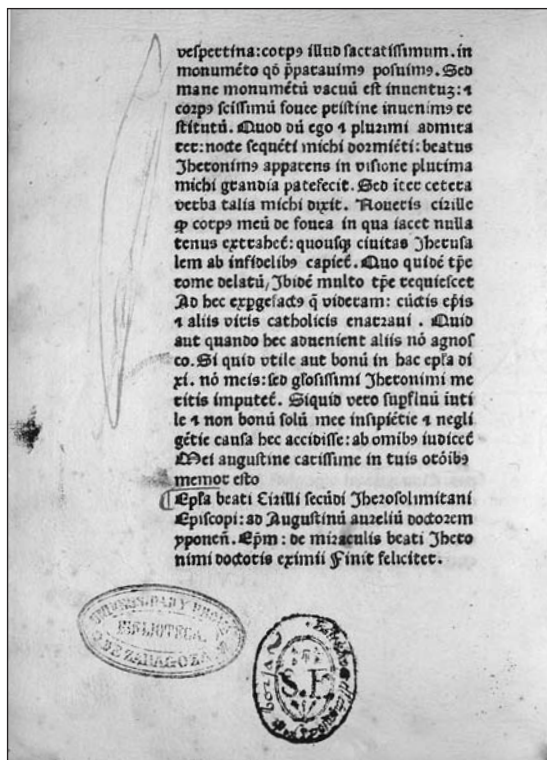 vespertina:corpꝰ illud sacratissimum.in
monumẽto qð p̃parauimꝰ posuimꝰ. Sed
mane monumẽtũ vacuũ est inuentuꝫ:⁊
corpꝰ scissimũ fouee pristine inuenimꝰ re
stitutũ. Quod dũ ego ⁊ plurimi admira
rer:nocte sequẽti michi dormiẽti:beatus
Jheronimꝰ apparens in visione plurima
michi grandia patefecit. Sed iter cetera
verba talia michi dixit. Noueris cirille
ꝙ corpꝰ meũ de fouea in qua iacet nulla
tenus extraheẽ:quousꝗ ciuitas Jherusa
lem ab infidelibꝰ capieẽ. Quo quidẽ tp̃e
rome delatũ/Jbidẽ multo tp̃e requiescet
Ad hec expgefactꝰ q̃ videram: cũctis ep̃is
⁊ aliis viris catholicis enarraui. Quid
aut quando hec aduenient aliis nõ agnos
co. Si quid vtile aut bonũ in hac epl̃a di
xi. nõ meis:sed gl̃osissimi Jheronimi me
ritis imputeẽ. Siquid vero sup̃fluũ inuti
le ⁊ non bonũ solũ mee insipiẽtie ⁊ negli
gẽtie causa hec accidisse:ab omibꝰ iudiceẽ
Mei augustine carissime in tuis orõibꝰ
memor esto
Epl̃a beati Cirilli secũdi Jherosolimitani
Episcopi:ad Augustinũ aureliũ doctorem
yponeñ. Ep̃m: de miraculis beati Jhero
nimi doctoris eximii Finit feliciter.
BIBLIOTECA
DE ZARAGOZA
S.F.